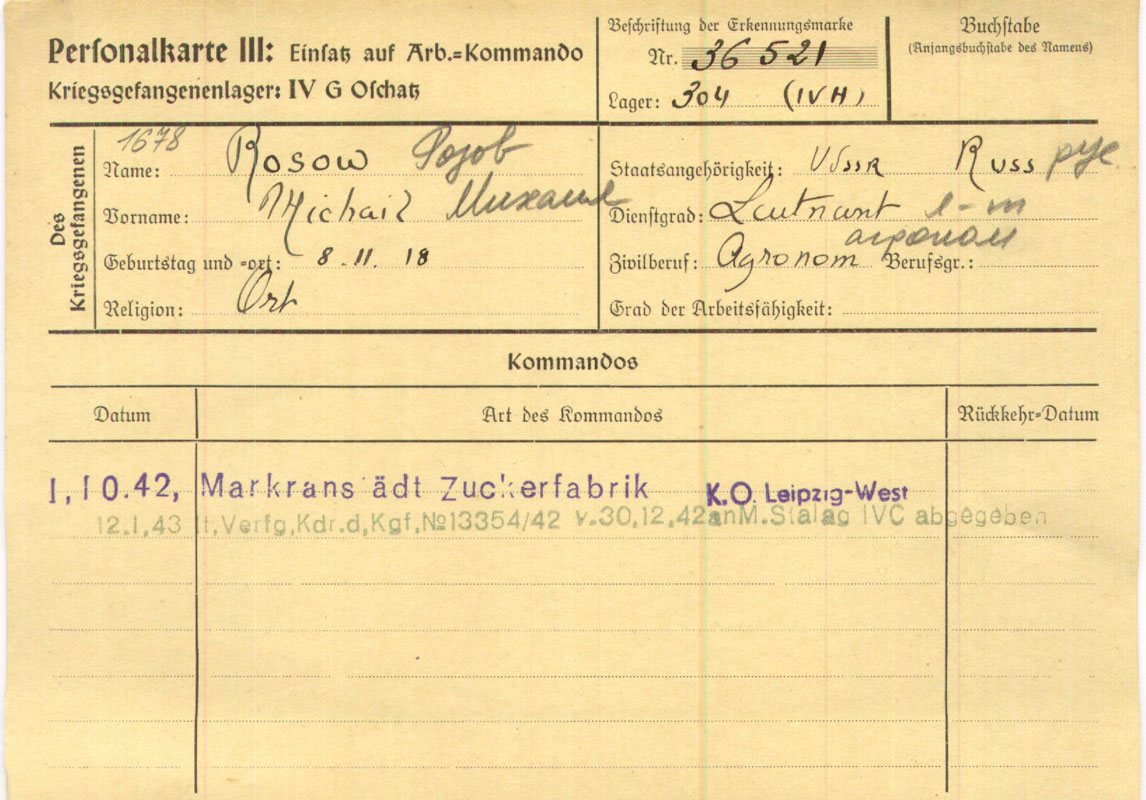 Personalkarte III: Einsatz auf Arb.=Kommando
Kriegsgefangenenlager: IV G Oschatz
Beschriftung der Erkennungsmarke
Nr. 36521
Lager: 304 (IVH)
Buchstabe
(Anfangsbuchstabe des Namens)
Des Kriegsgefangenen
1678
Name: Rosow Розов
Vorname: Michail Михаил
Geburtstag und =ort: 8.11.18
Religion: Ort
Staatsangehörigkeit: UdSSR Russ рус
Dienstgrad: Leutnant л-т
Zivilberuf: Agronom агроном Berufsgr.:
Grad der Arbeitsfähigkeit:
Kommandos
Datum Art des Kommandos Rückkehr=Datum
1,10.42, Markrans ädt Zuckerfabrik K.O. Leipzig-West
12.1,43 lt,Verfg,Kdr.d,Kgf,№13354/42 v.30,12,42 an M.Stalag IVC abgegeben